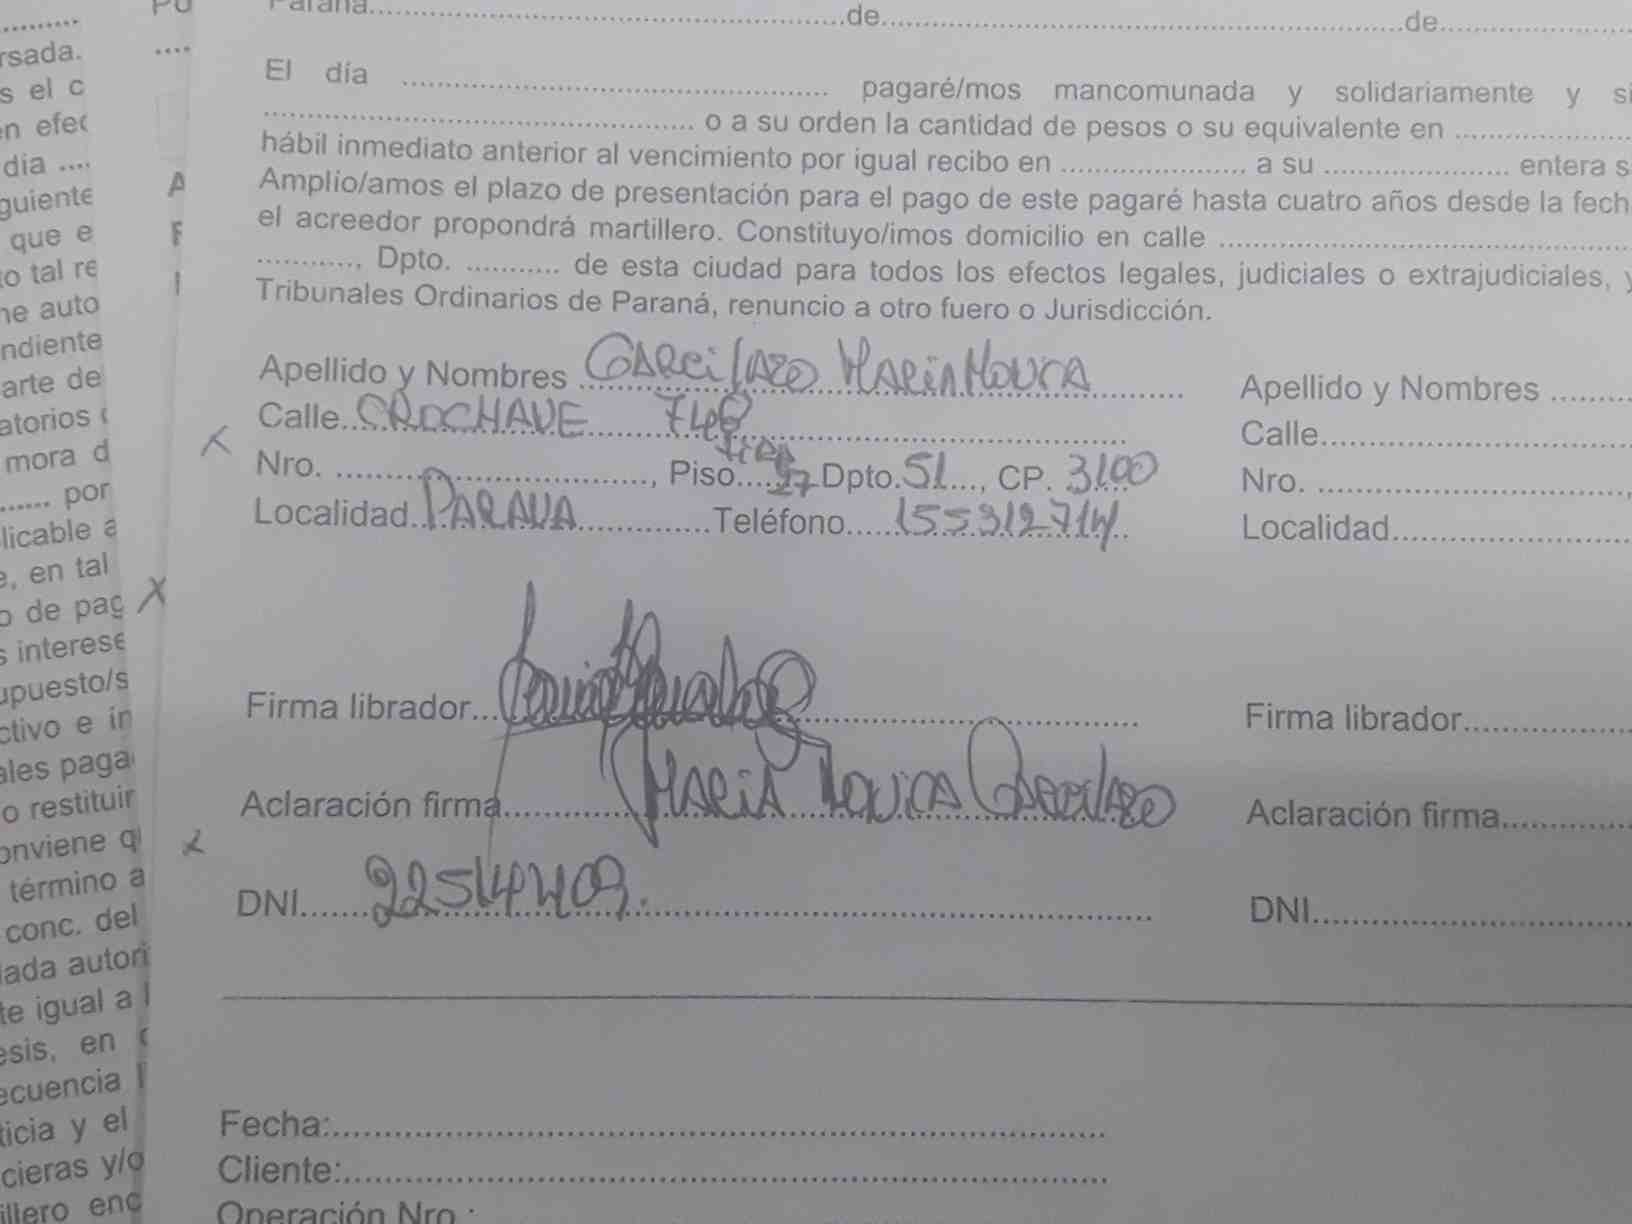 Paraná...de...de...
El día ... pagaré/mos mancomunada y solidariamente y si
... o a su orden la cantidad de pesos o su equivalente en ...
hábil inmediato anterior al vencimiento por igual recibo en ... a su ... entera s
Amplio/amos el plazo de presentación para el pago de este pagaré hasta cuatro años desde la fech
el acreedor propondrá martillero. Constituyo/imos domicilio en calle ...
..., Dpto. ... de esta ciudad para todos los efectos legales, judiciales o extrajudiciales, y
Tribunales Ordinarios de Paraná, renuncio a otro fuero o Jurisdicción.
Apellido y Nombres GARCilAZO MARIA MONICA
Calle CROCHAVE 748
Nro. ..., Piso... 27 Dpto. 51..., CP. 3100
Localidad PARANA Teléfono 155312714
Firma librador...
Aclaración firma MARIA MONICA GARCilAZO
DNI 22514409.
Apellido y Nombres ...
Calle...
Nro. ...
Localidad...
Firma librador...
Aclaración firma...
DNI...
Fecha:...
Cliente:...
Operación Nro.:
rsada.
s el c
en efec
dia ....
guiente
que e
to tal re
ne auto
ndiente
arte de
atorios
mora d
...... por
licable a
e, en tal
o de pag
s interese
upuesto/s
ctivo e in
ales paga
o restituir
onviene q
término a
conc. del
lada autori
te igual a l
esis, en
ecuencia
ticia y el
cieras y/o
illero enc